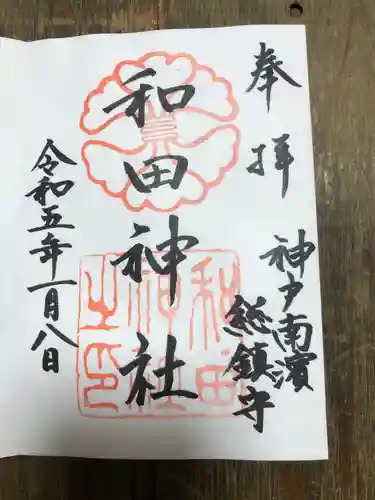 奉拝
神戸南濱
総鎮守
和田神社
和田
神社
之印
令和五年一月八日